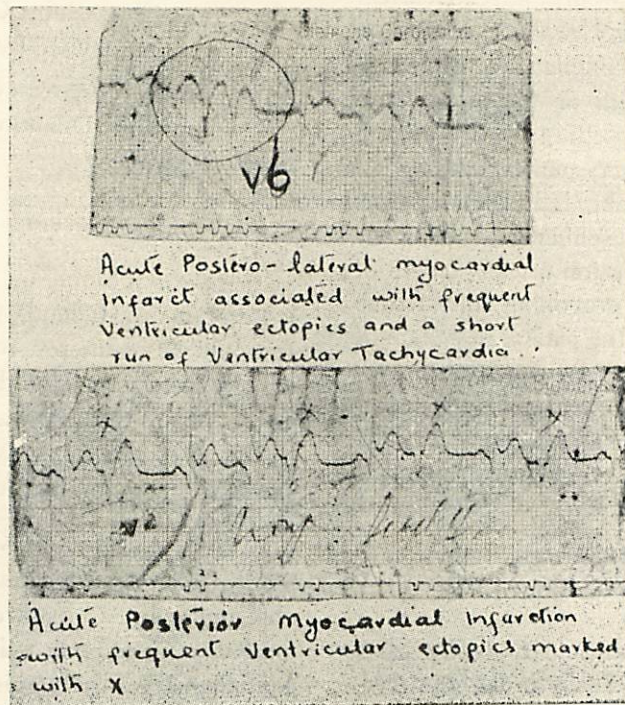 V6
Acute Postero-lateral myocardial
Infarct associated with frequent
Ventricular ectopics and a short
run of Ventricular Tachycardia.
x x x x
Acute Posterior Myocardial Infarction
with frequent ventricular ectopics marked
with X